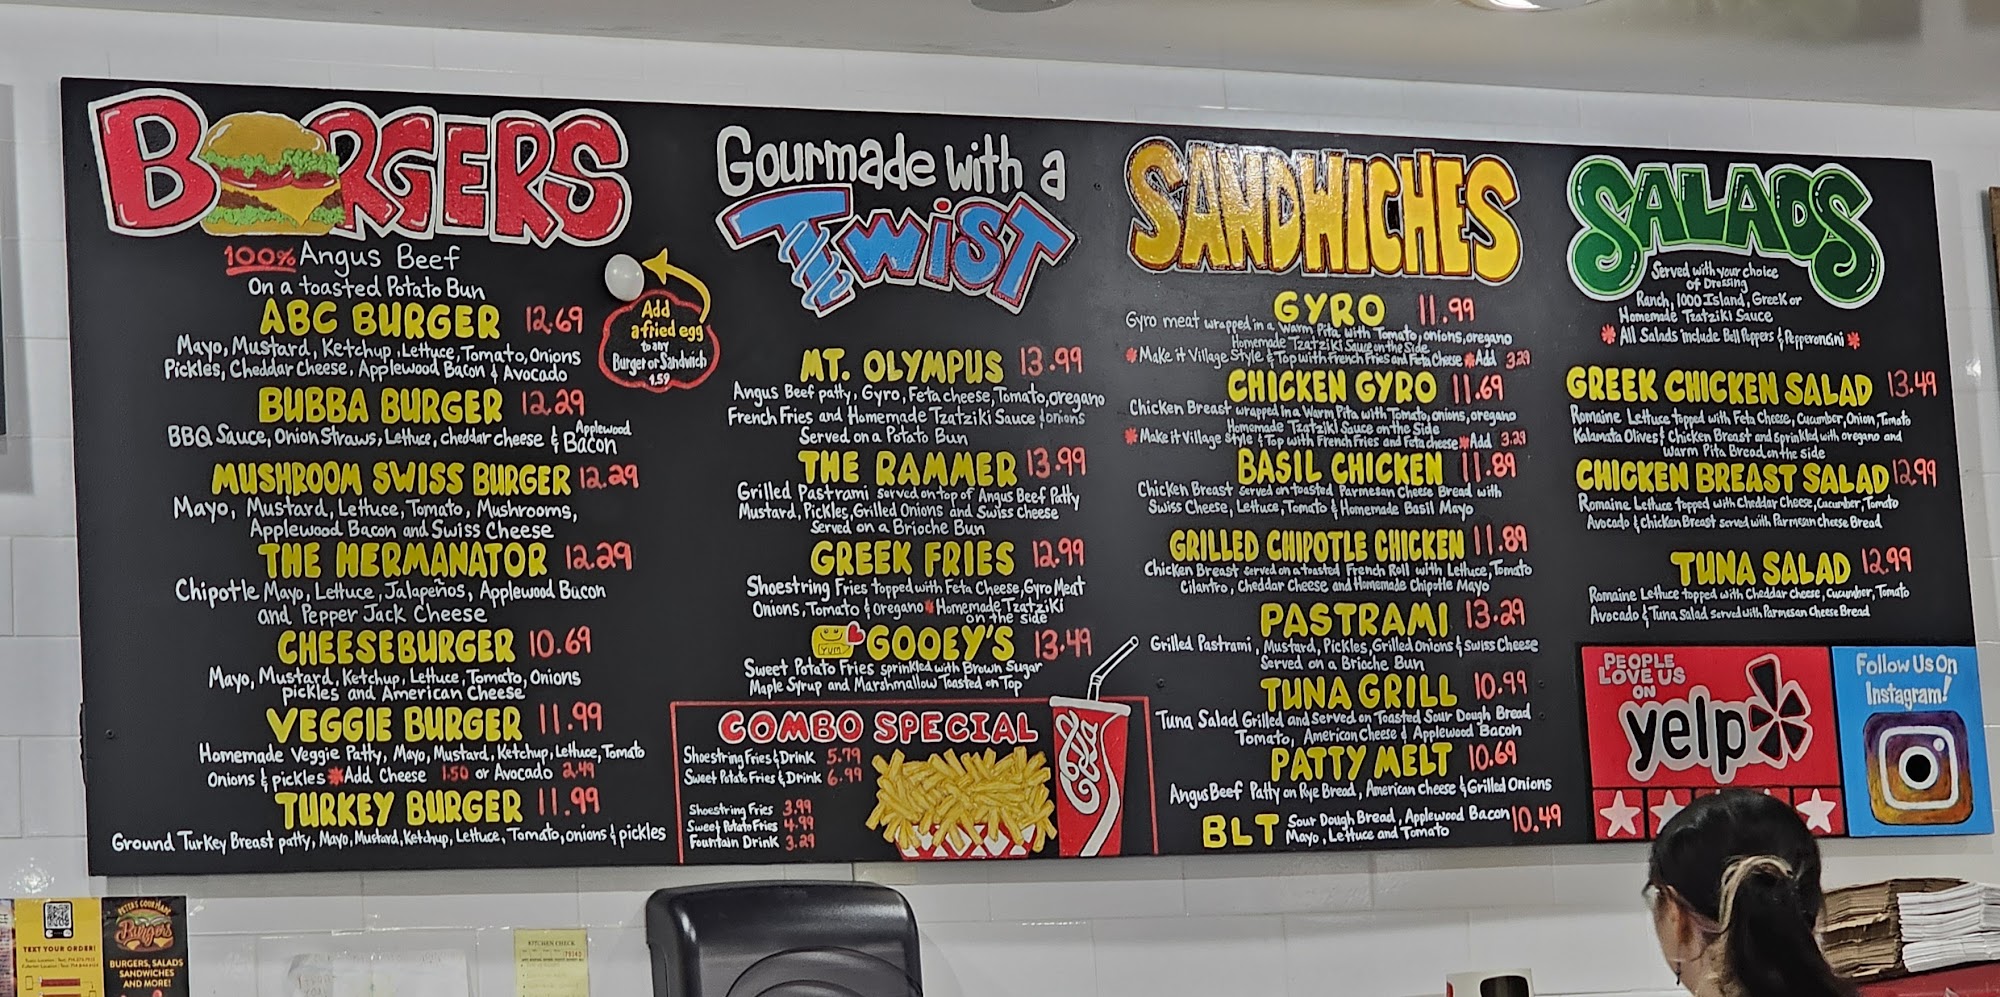 BURGERS
100% Angus Beef
On a toasted Potato Bun
ABC BURGER 12.69
Mayo, Mustard, Ketchup, Lettuce, Tomato, Onions
Pickles, Cheddar Cheese, Applewood Bacon & Avocado
BUBBA BURGER 12.29
BBQ Sauce, Onion Straws, Lettuce, cheddar cheese & Applewood Bacon
MUSHROOM SWISS BURGER 12.29
Mayo, Mustard, Lettuce, Tomato, Mushrooms,
Applewood Bacon and Swiss Cheese
THE HERMANATOR 12.29
Chipotle Mayo, Lettuce, Jalapeños, Applewood Bacon
and Pepper Jack Cheese
CHEESEBURGER 10.69
Mayo, Mustard, Ketchup, Lettuce, Tomato, Onions
pickles and American Cheese
VEGGIE BURGER 11.99
Homemade Veggie Patty, Mayo, Mustard, Ketchup, Lettuce, Tomato
Onions & pickles *Add Cheese 1.50 or Avocado 2.49
TURKEY BURGER 11.99
Ground Turkey Breast patty, Mayo, Mustard, Ketchup, Lettuce, Tomato, onions & pickles
Add
a fried egg
to any
Burger or Sandwich
1.59
Gourmade with a
TWIST
MT. OLYMPUS 13.99
Angus Beef patty, Gyro, Feta cheese, Tomato, oregano
French Fries and Homemade Tzatziki Sauce & onions
Served on a Potato Bun
THE RAMMER 13.99
Grilled Pastrami served on top of Angus Beef Patty
Mustard, Pickles, Grilled Onions and Swiss Cheese
Served on a Brioche Bun
GREEK FRIES 12.99
Shoestring Fries topped with Feta Cheese, Gyro Meat
Onions, Tomato & oregano *Homemade Tzatziki
on the side
YUM
GOOEY'S 13.49
Sweet Potato Fries sprinkled with Brown Sugar
Maple Syrup and Marshmallow Toasted on Top
COMBO SPECIAL
Shoestring Fries & Drink 5.79
Sweet Potato Fries & Drink 6.99
Shoestring Fries 3.99
Sweet Potato Fries 4.99
Fountain Drink 3.29
SANDWICHES
GYRO 11.99
Gyro meat wrapped in a Warm Pita with Tomato, onions, oregano
Homemade Tzatziki Sauce on the Side
*Make it Village Style & Top with French Fries and Feta Cheese *Add 3.29
CHICKEN GYRO 11.69
Chicken Breast wrapped in a Warm Pita with Tomato, onions, oregano
Homemade Tzatziki Sauce on the Side
*Make it Village Style & Top with French Fries and Feta cheese *Add 3.29
BASIL CHICKEN 11.89
Chicken Breast served on toasted Parmesan Cheese Bread with
Swiss Cheese, Lettuce, Tomato & Homemade Basil Mayo
GRILLED CHIPOTLE CHICKEN 11.89
Chicken Breast served on a toasted French Roll with Lettuce, Tomato
Cilantro, Cheddar Cheese and Homemade Chipotle Mayo
PASTRAMI 13.29
Grilled Pastrami, Mustard, Pickles, Grilled Onions & Swiss Cheese
Served on a Brioche Bun
TUNA GRILL 10.99
Tuna Salad Grilled and Served on Toasted Sour Dough Bread
Tomato, American Cheese & Applewood Bacon
PATTY MELT 10.69
Angus Beef Patty on Rye Bread, American Cheese & Grilled Onions
BLT Sour Dough Bread, Applewood Bacon 10.49
Mayo, Lettuce and Tomato
SALADS
Served with your choice
of Dressing
Ranch, 1000 Island, Greek or
Homemade Tzatziki Sauce
*All Salads include Bell Peppers & Pepperoncini*
GREEK CHICKEN SALAD 13.49
Romaine Lettuce topped with Feta Cheese, Cucumber, Onion, Tomato
Kalamata Olives & Chicken Breast and sprinkled with oregano and
Warm Pita Bread on the side
CHICKEN BREAST SALAD 12.99
Romaine Lettuce topped with Cheddar Cheese, Cucumber, Tomato
Avocado & Chicken Breast served with Parmesan Cheese Bread
TUNA SALAD 12.99
Romaine Lettuce topped with Cheddar Cheese, Cucumber, Tomato
Avocado & Tuna Salad served with Parmesan Cheese Bread
PEOPLE
LOVE US
ON
yelp
Follow Us On
Instagram!
TEXT YOUR ORDER!
Burgers
BURGERS, SALADS
SANDWICHES
AND MORE!
KITCHEN CHECK